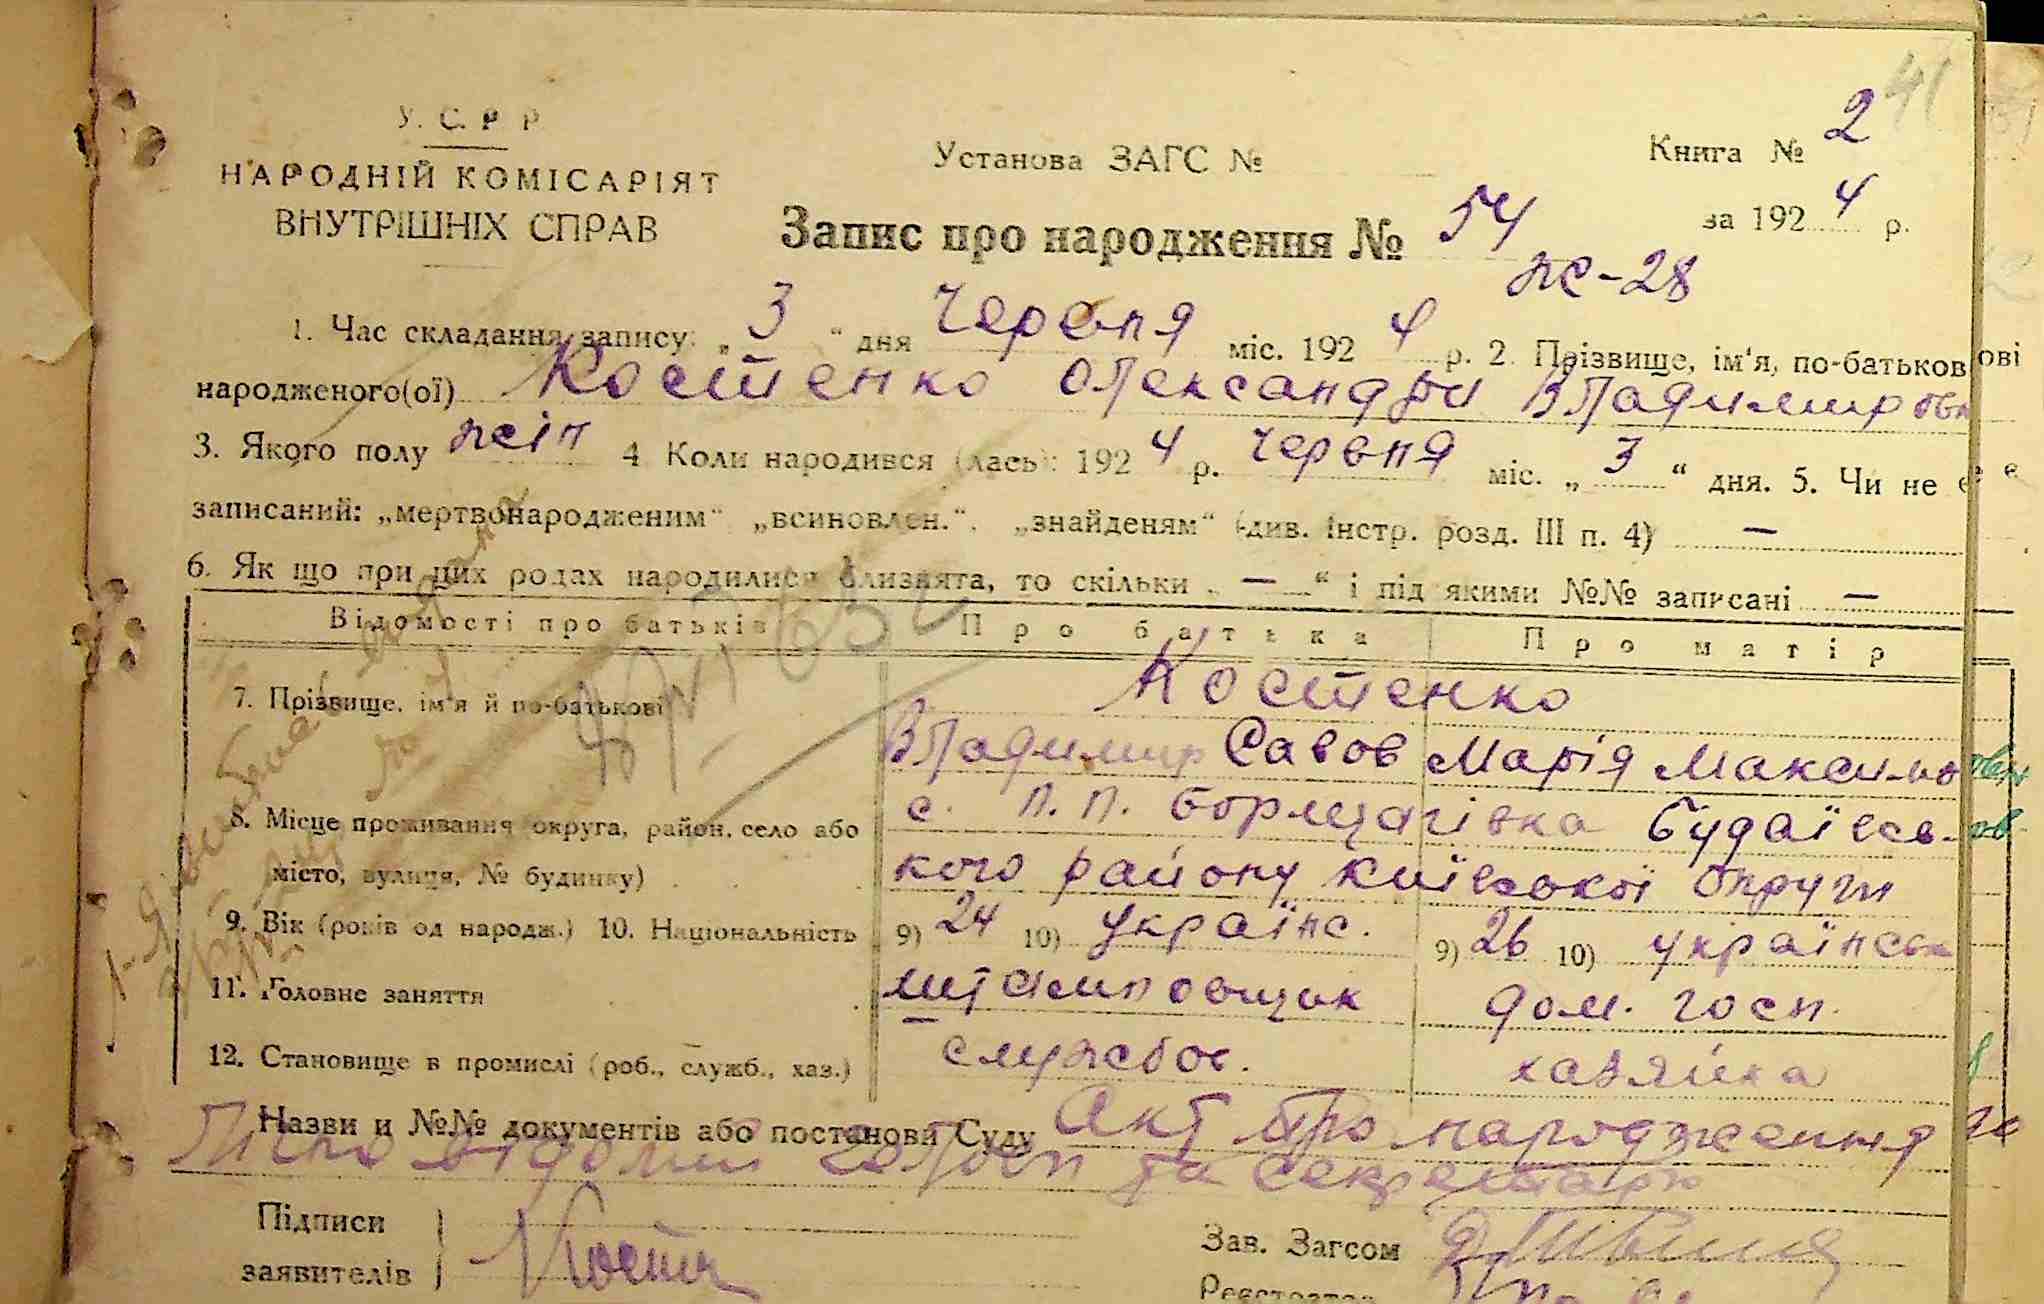 41
У. С. Р Р
НАРОДНІЙ КОМІСАРІЯТ
ВНУТРІШНІХ СПРАВ
Установа ЗАГС №
Книга № 2
за 1924 р.
Запис про народження № 54
ж-28
1. Час складання запису: „3“ дня Червня міс. 1924 р. 2. Прізвище, ім'я, по-батькові
народженого(ої) Костенко Олександри Владимировн
3. Якого полу жін 4 Коли народився (лась): 1924 р. Червня міс. „3“ дня. 5. Чи не є
записаний: „мертвонародженим“ „всиновлен.“, „знайденям“ (див. інстр. розд. III п. 4) —
6. Як що при цих родах народилися близнята, то скільки „—“ і під якими №№ записані —
Відомості про батьків Про батька Про матір
7. Прізвище, ім'я й по-батькові Костенко
Владимир Савов Марія Максимо
8. Місце проживання округа, район, село або с. П.П. Борщагівка Будаївсь-
місто, вулиця, № будинку) кого району Київської Округи
9. Вік (років од народж.) 10. Національність 9) 24 10) Українс. 9) 26 10) українськ
11. Головне заняття штамповщик дом. госп.
12. Становище в промислі (роб., служб., хаз.) службов. хазяйка
Назви и №№ документів або постанови Суду Акт про народження
та секретаря
Підписи
заявителів
Зав. Загсом
Реєстратор